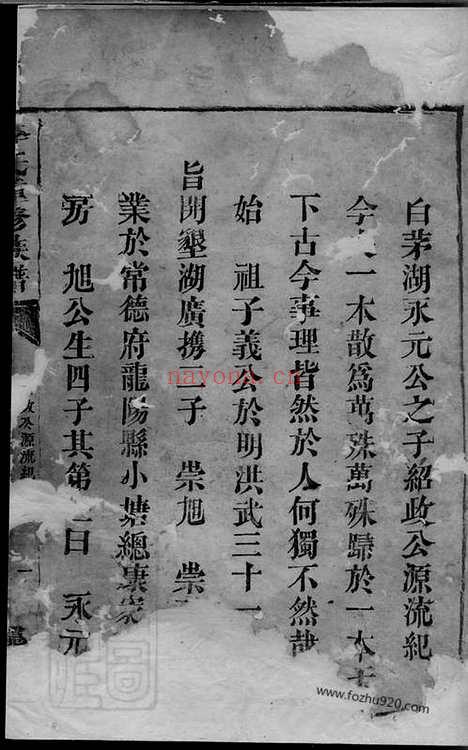 白茅湖永元公之子紹政公源流紀
今 一本散為萬殊萬殊歸於一本
下古今事理皆然於人何獨不然哉
始 祖子義公於明洪武三十一
旨開墾湖廣携 子 崇旭 崇
業於常德府龍陽縣小塘總康家
房 旭公生四子其第 曰 永元
氏 修族譜
政公源流紀
一
nayona.cn
www.fozhu920.com